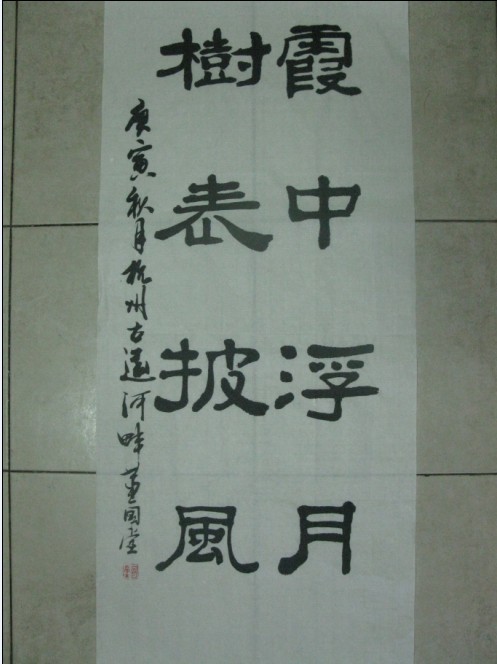 霞中浮月
樹表披風
庚寅秋月杭州古運河畔董国堂